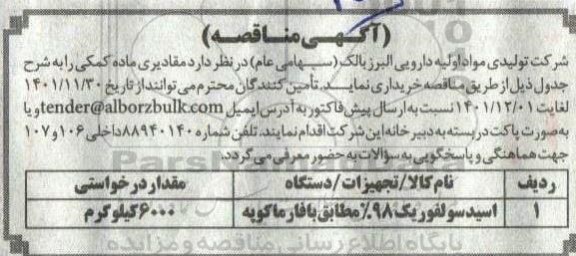 (آگهی مناقصه)
شرکت تولیدی مواد اولیه دارویی البرز بالک (سهامی عام) در نظر دارد مقادیری ماده کمکی را به شرح
جدول ذیل از طریق مناقصه خریداری نماید. تأمین کنندگان محترم می توانند از تاریخ ۱۴۰۱/۱۱/۳۰
لغایت ۱۴۰۱/۱۲/۰۱ نسبت به ارسال پیش فاکتور به آدرس ایمیل tender@alborzbulk.com و یا
به صورت پاکت در بسته به دبیرخانه این شرکت اقدام نمایند. تلفن شماره ۸۸۹۴۰۱۴۰ داخلی ۱۰۶ و ۱۰۷
جهت هماهنگی و پاسخگویی به سؤالات به حضور معرفی می گردد.
ردیف نام کالا/تجهیزات/دستگاه مقدار درخواستی
۱ اسید سولفوریک ۹۸٪ مطابق با فارماکوپه ۶۰۰۰ کیلوگرم
پایگاه اطلاع رسانی مناقصه و مزایده